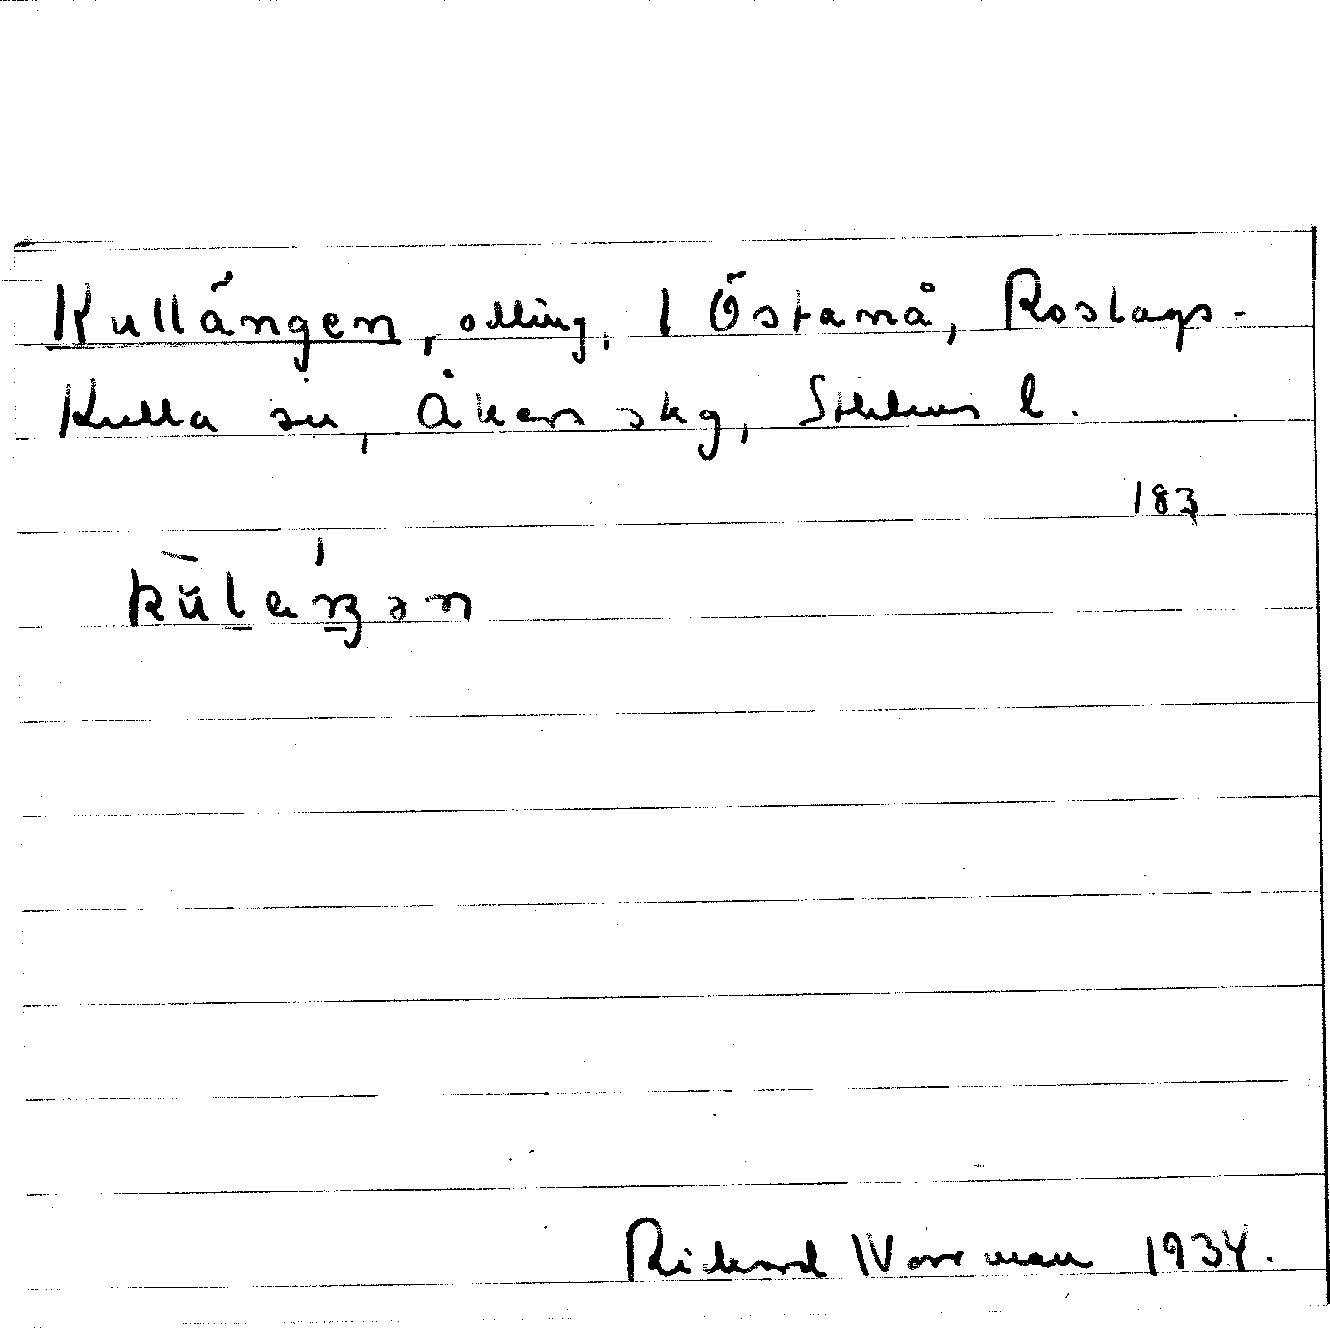 Kullängen, odling, 1 Östanå, Roslags-
Kulla sn, Åkers skg, Sthlms l.
183
kŭ̀lɛŋən
Rickard Norrman 1934.